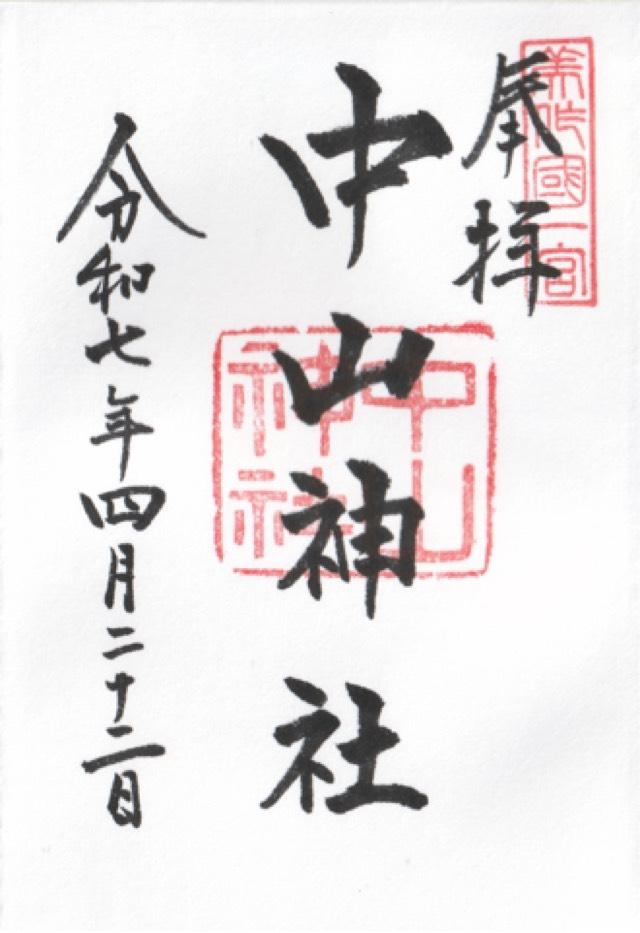 奉拝
美作國一宮
中山神社
中山
神社
令和七年四月二十二日